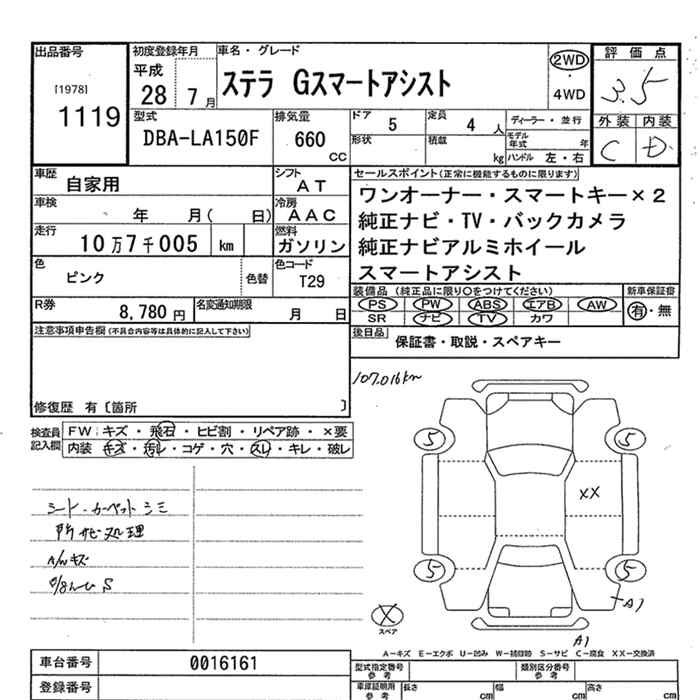 出品番号
[1978]
1119
初度登録年月
平成
28 7月
車名・グレード
ステラ Gスマートアシスト
2WD
・
4WD
評価点
3.5
外装 内装
C D
型式
DBA-LA150F
排気量
660
CC
ドア 5
定員 4 人
形状
積載 kg
ディーラー・並行
モデル年式 年
ハンドル 左・右
車歴 自家用
シフト AT
車検 年 月( 日)
冷房 AAC
走行 10万7千005 km
燃料 ガソリン
色 ピンク
色替
色コード T29
R券 8,780円
名変通知期限 月 日
セールスポイント(正常に機能するものに限ります)
ワンオーナー・スマートキー×2
純正ナビ・TV・バックカメラ
純正ナビアルミホイール
スマートアシスト
装備品 (純正品に限り〇をつけてください)
PS PW ABS エアB AW
SR ナビ TV カワ
新車保証書
有・無
後日品
保証書・取説・スペアキー
注意事項申告欄(不具合内容等は具体的に記入して下さい)
修復歴 有〔箇所 〕
107,016km
検査員記入欄
FW: キズ・飛石・ヒビ割・リペア跡・×要
内装 キズ・汚レ・コゲ・穴・スレ・キレ・破レ
シート・カーペットシミ
所サビ処理
A/Wキズ
5 5
XX
5 5
A1
A1
スペア
A-キズ E-エクボ U-凹み W-補修跡 S-サビ C-腐食 XX-交換済
車台番号 0016161
登録番号
型式指定番号 参考
類別区分番号 参考
車庫証明用 参考
長さ cm
幅 cm
高さ cm